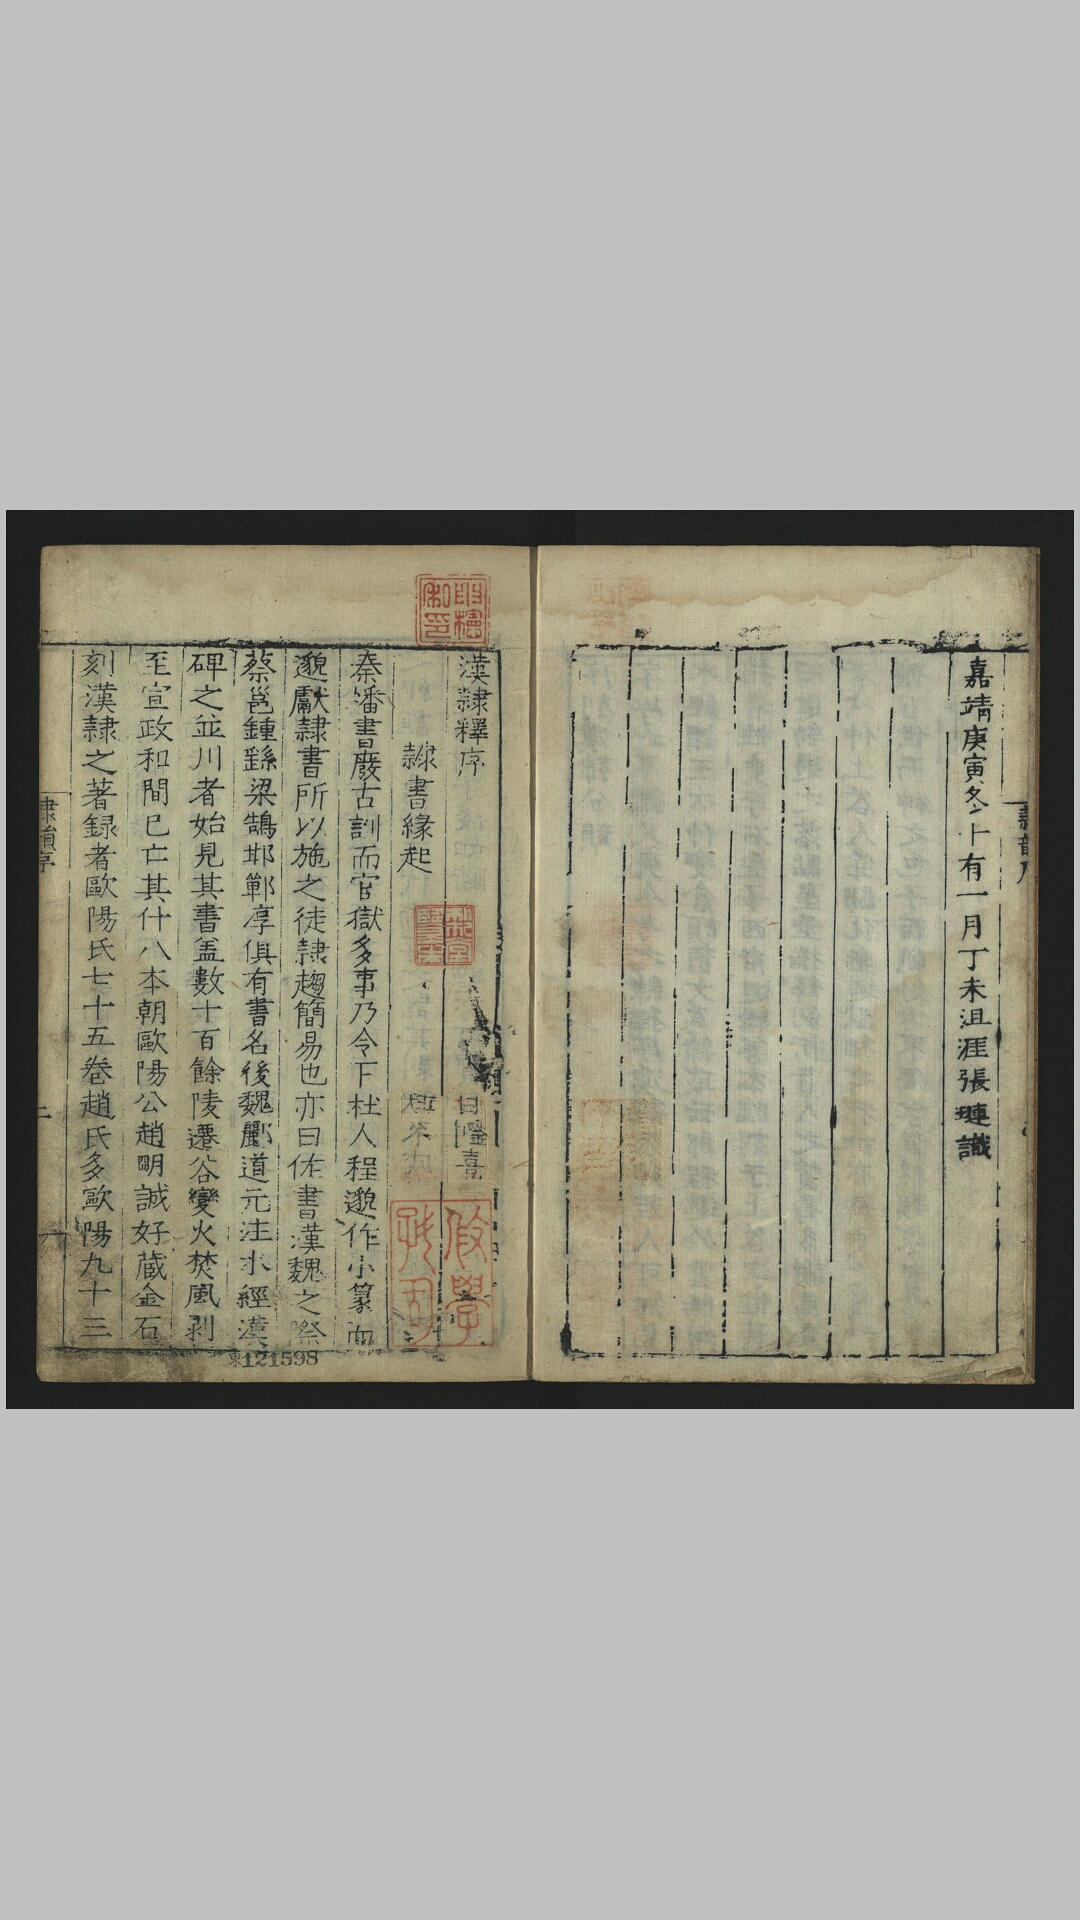 嘉靖庚寅冬十有一月丁未沮涯張璉識
漢隸釋序
隸書緣起
秦燔書廢古訓而官獄多事乃令下杜人程邈作小篆而
邈獻隸書所以施之徒隸趨簡易也亦曰佐書漢魏之際
蔡邕鍾繇梁鵠邯鄲淳俱有書名後魏酈道元注水經漢
碑之並川者始見其書盖數十百餘陵遷谷變火焚風剥
至宣政和間已亡其什八本朝歐陽公趙明誠好蔵金石
刻漢隸之著録者歐陽氏七十五卷趙氏多歐陽九十三
東121598